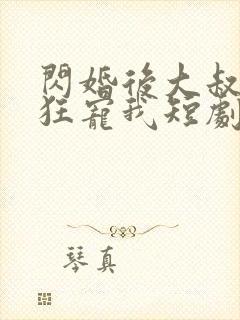 閃婚後大叔
狂寵我短劇
琴真